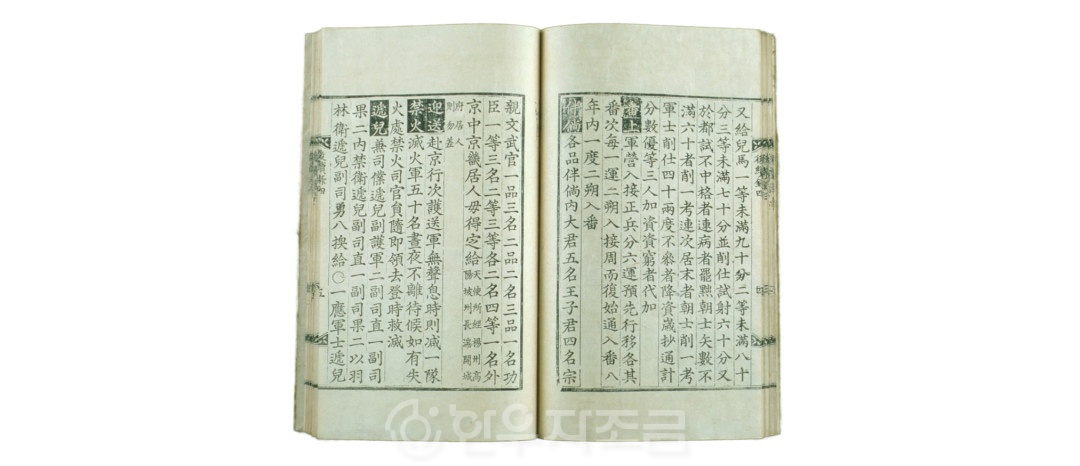 又給兒馬一等未滿九十分二等未滿八十
分三等未滿七十分並削仕試射六十分又
於都試不中格者連病者罷黜朝士矢數不
滿六十者削一考連次居末者朝士削一考
軍士削仕四十兩度不參者降資歲抄通計
分數優等三人加資資窮者代加
番上軍營入接正兵分六運預先行移各其
番次每一運二朔入接周而復始通入番八
年内一度二朔入番
伴倘各品伴倘内大君五名王子君四名宗
親文武官一品三名二品二名三品一名功
臣一等三名二等三等各二名四等一名外
京中京畿居人毋得定給天使所經楊州高
陽坡州長湍開城
府居人
則勿差
迎送赴京行次護送軍無聲息時則減一隊
禁火滅火軍五十名晝夜不離待候如有失
火處禁火司官員隨即領去登時救滅
遞兒兼司僕遞兒副護軍二副司直一副司
果二内禁衛遞兒副司直一副司果二以羽
林衛遞兒副司勇八換給○一應軍士遞兒
한우자조금